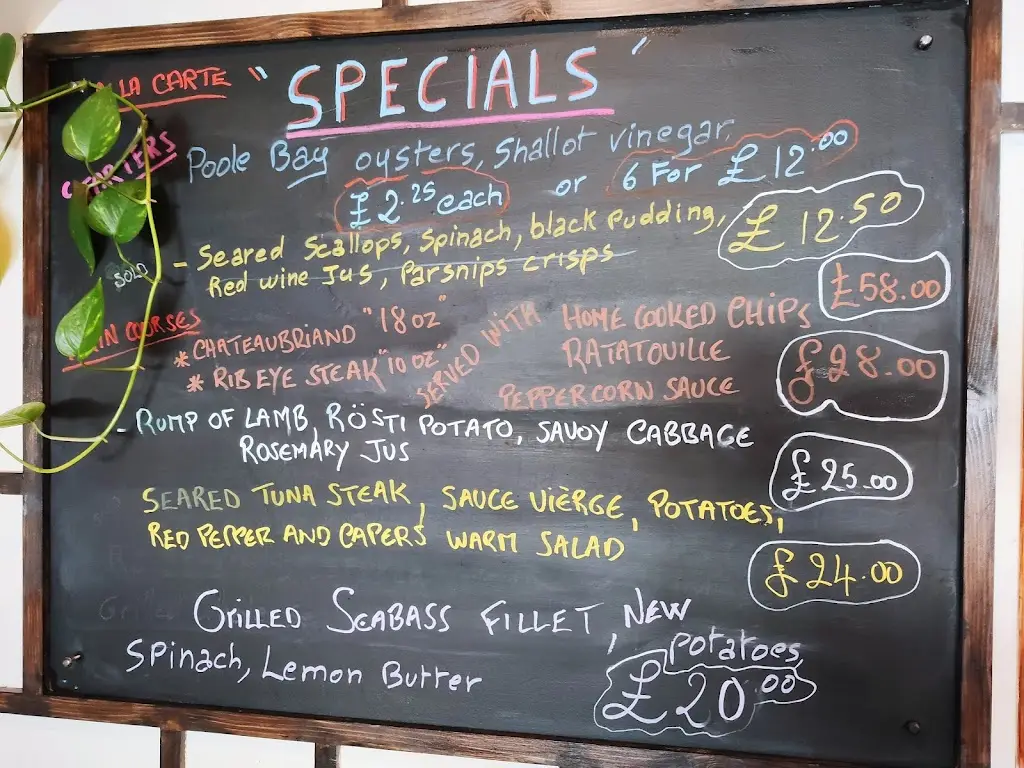 LA CARTE " SPECIALS "
Poole Bay oysters, Shallot vinegar,
£ 2.25 each or 6 For £ 12.00
Seared Scallops, Spinach, black pudding, £ 12.50
SOLD - Red wine Jus, Parsnips crisps
£58.00
COURSES
* CHATEAUBRIAND "18 oz" SERVED WITH HOME COOKED CHIPS
* RIB EYE STEAK "10 oz" RATATOUILLE £28.00
PEPPERCORN SAUCE
- RUMP OF LAMB, RÖSTI POTATO, SAVOY CABBAGE
ROSEMARY JUS £25.00
SEARED TUNA STEAK, SAUCE VIÈRGE, POTATOES,
RED PEPPER AND CAPERS WARM SALAD £24.00
GRILLED SEABASS FILLET, NEW
potatoes,
Spinach, Lemon Butter £20.00